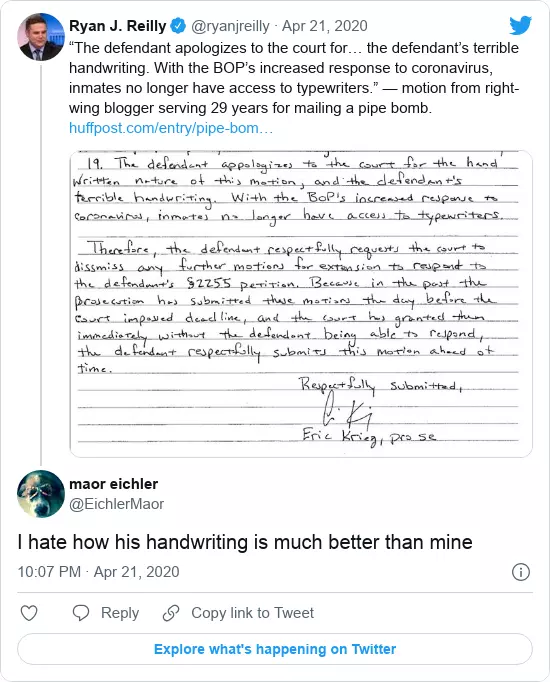 Ryan J. Reilly @ryanjreilly · Apr 21, 2020
“The defendant apologizes to the court for… the defendant’s terrible
handwriting. With the BOP’s increased response to coronavirus,
inmates no longer have access to typewriters.” — motion from right-
wing blogger serving 29 years for mailing a pipe bomb.
huffpost.com/entry/pipe-bom…
19. The defendant appologizes to the court for the hand
written nature of this motion, and the defendant's
terrible handwriting. With the BoP's increased response to
coronavirus, inmates no longer have access to typewriters.
Therefore, the defendant respectfully requests the court to
dissmiss any further motions for extension to respond to
the defendant's §2255 petition. Because in the past the
prosecution has submitted these motions the day before the
court imposed deadline, and the court has granted them
immediately without the defendant being able to respond,
the defendant respectfully submits this motion ahead of
time.
Respectfully submitted,
Eric Krieg, pro se
maor eichler
@EichlerMaor
I hate how his handwriting is much better than mine
10:07 PM · Apr 21, 2020
Reply
Copy link to Tweet
Explore what's happening on Twitter